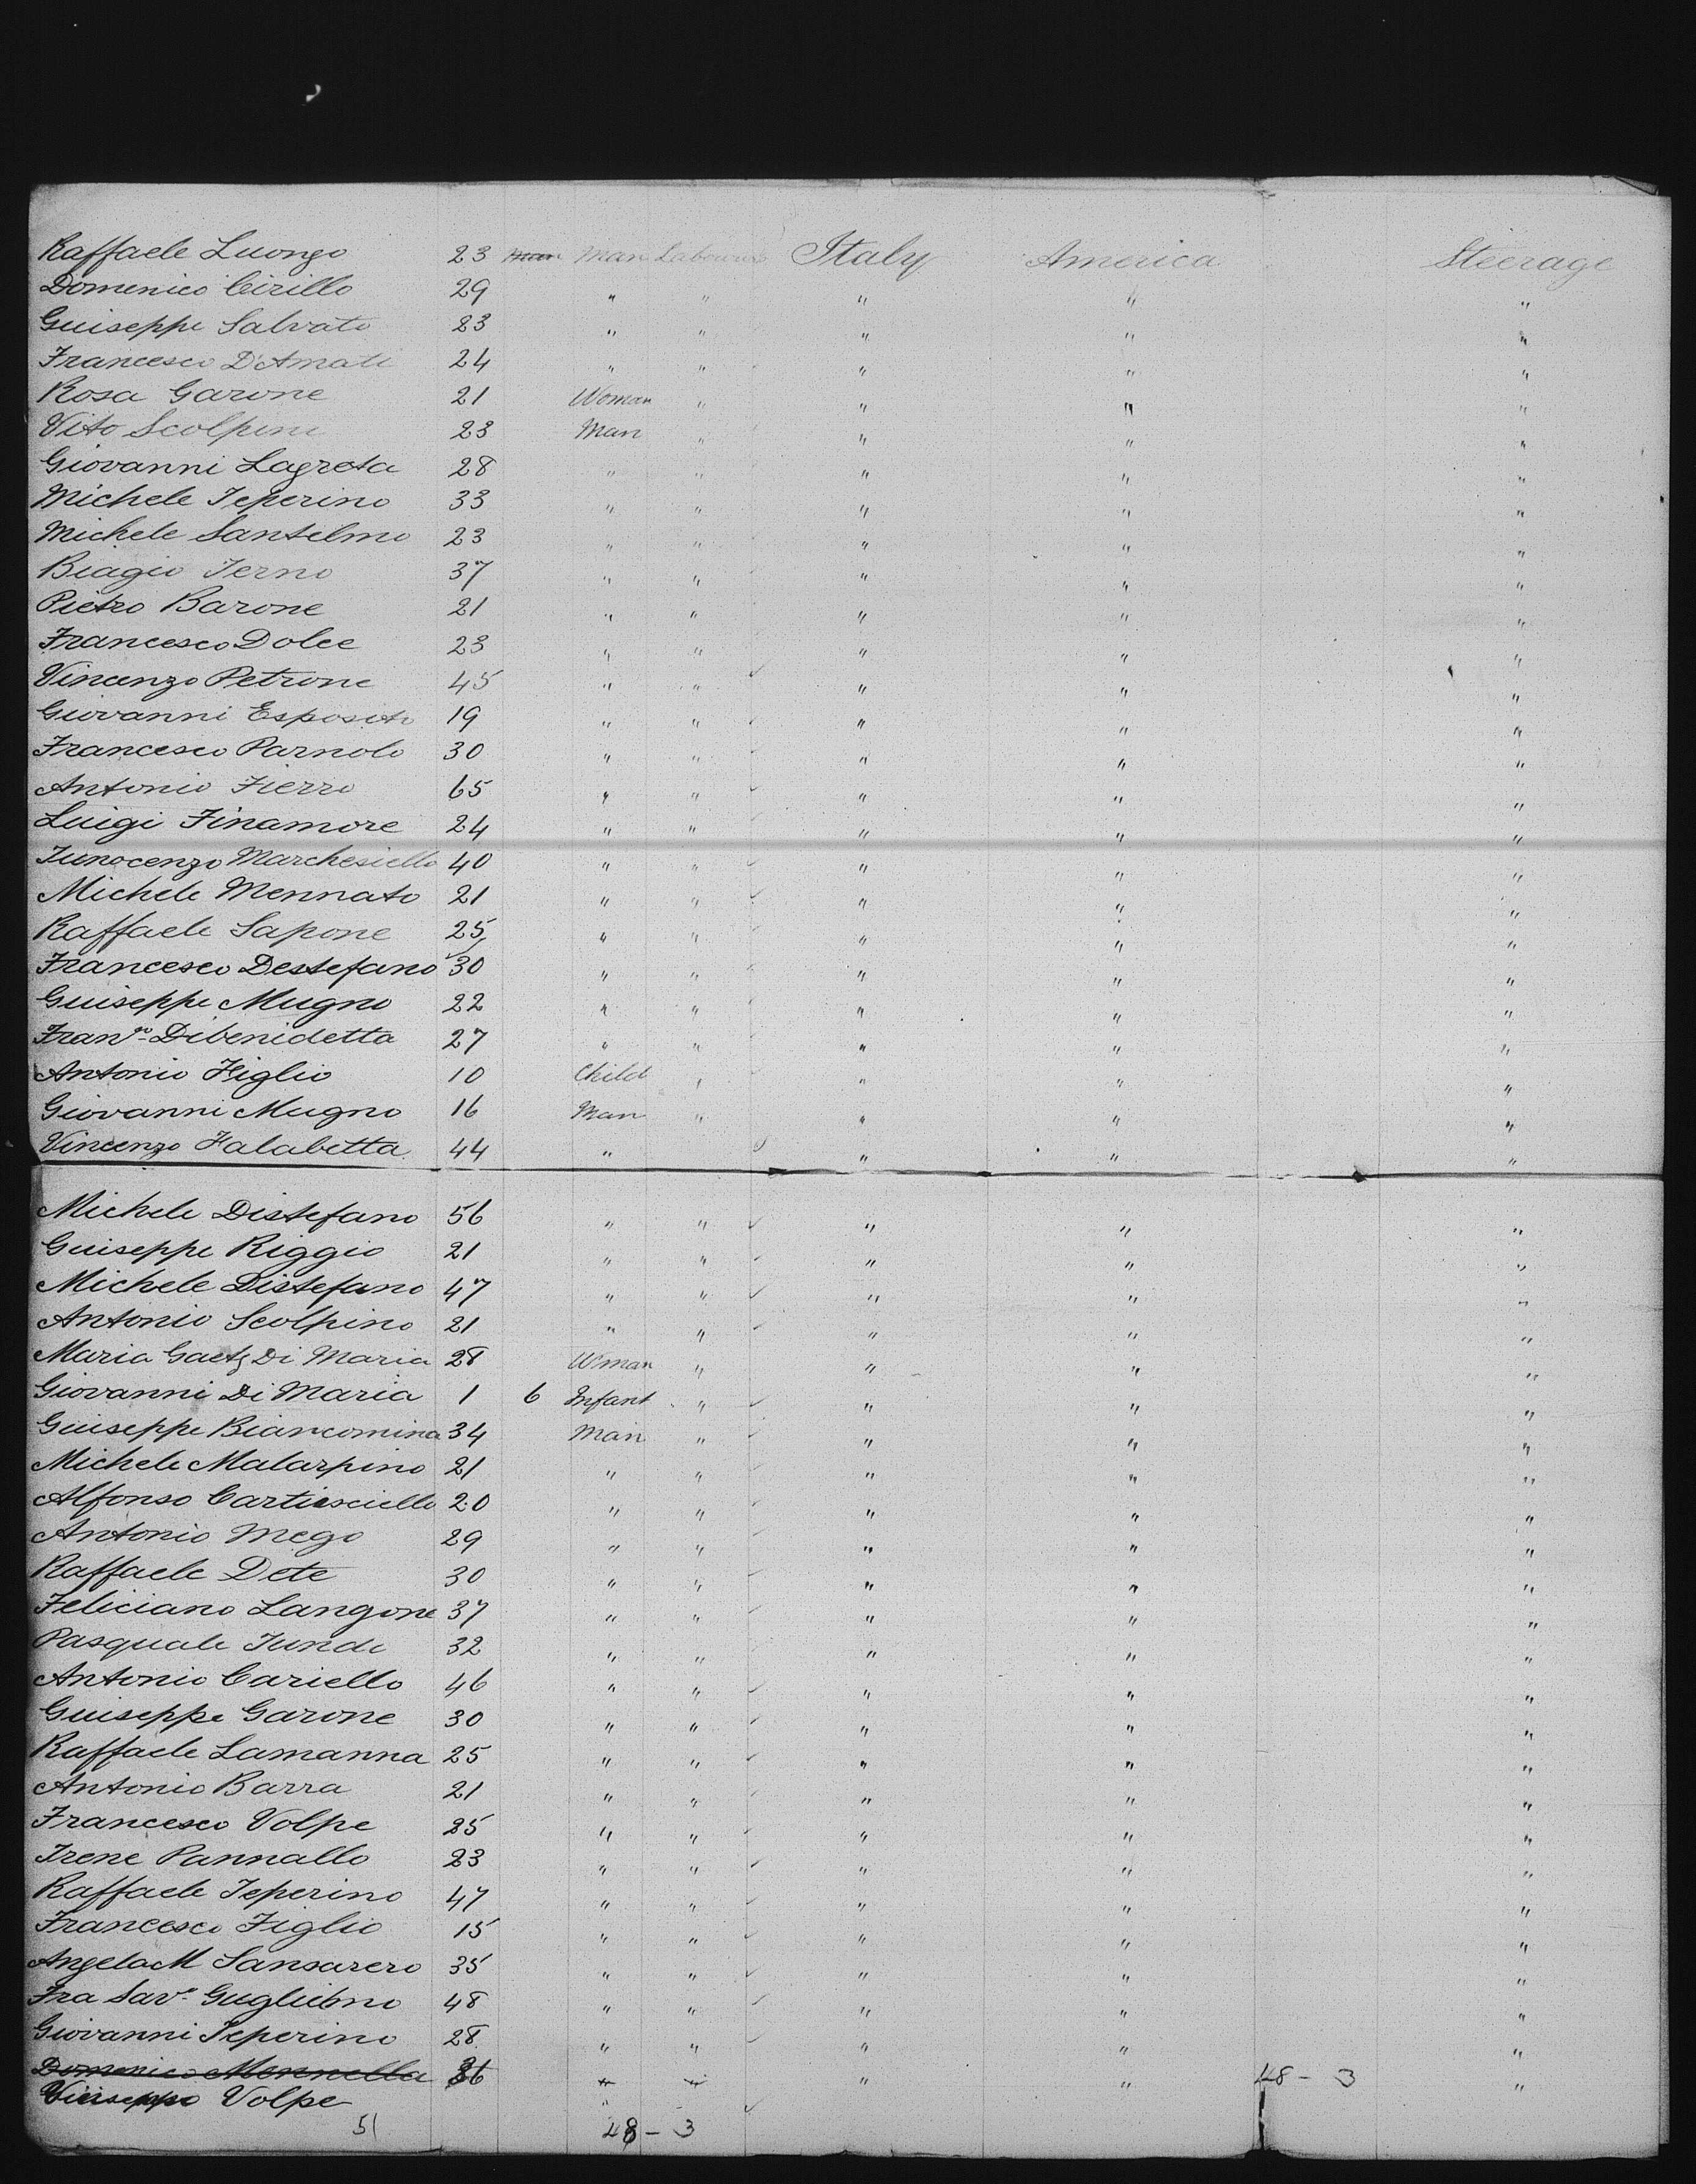 Raffaele Luongo 23 man Man Labourer Italy America Steerage
Domenico Cirillo 29 " " " " "
Guiseppe Salvato 23 " " " " "
Francesco D'Amati 24 " " " " "
Rosa Garone 21 Woman " " " "
Vito Scolpini 23 Man " " " "
Giovanni Lagreta 28 " " " " "
Michele Teperino 33 " " " " "
Michele Santelmo 23 " " " " "
Biagio Ierno 37 " " " " "
Pietro Barone 21 " " " " "
Francesco Dolce 23 " " " " "
Vincenzo Petrone 45 " " " " "
Giovanni Esposito 19 " " " " "
Francesco Parnolo 30 " " " " "
Antonio Fierro 65 " " " " "
Luigi Finamore 24 " " " " "
Iunocenzo Marchesiello 40 " " " " "
Michele Mennato 21 " " " " "
Raffaele Sapone 25 " " " " "
Francesco Destefano 30 " " " " "
Guiseppe Mugno 22 " " " " "
Fran^co Dibenidetta 27 " " " " "
Antonio Figlio 10 Child " " " "
Giovanni Mugno 16 Man " " " "
Vincenzo Falabetta 44 " " " "
Michele Distefano 56 " " " " "
Guiseppe Riggio 21 " " " " "
Michele Distefano 47 " " " " "
Antonio Scolpino 21 " " " " "
Maria Gaetz Di Maria 28 Woman " " " "
Giovanni Di Maria 1 6 Infant " " " "
Guiseppe Biancomina 34 Man " " " "
Michele Malarpino 21 " " " " "
Alfonso Cartiesciello 20 " " " " "
Antonio Mego 29 " " " " "
Raffaele Dete 30 " " " " "
Feliciano Langone 37 " " " " "
Pasquale Iundi 32 " " " " "
Antonio Cariello 46 " " " " "
Guiseppe Garone 30 " " " " "
Raffaele Lamanna 25 " " " " "
Antonio Barra 21 " " " " "
Francesco Volpe 25 " " " " "
Irene Pannallo 23 " " " " "
Raffaele Teperino 47 " " " " "
Francesco Figlio 15 " " " " "
Angela M Sansarero 35 " " " " "
Fra Sav^e Guglielmo 48 " " " " "
Giovanni Teperino 28 " " " " "
Domenico Mennella 36 " " " " 48 - 3 "
Guiseppe Volpe "
51 48 - 3